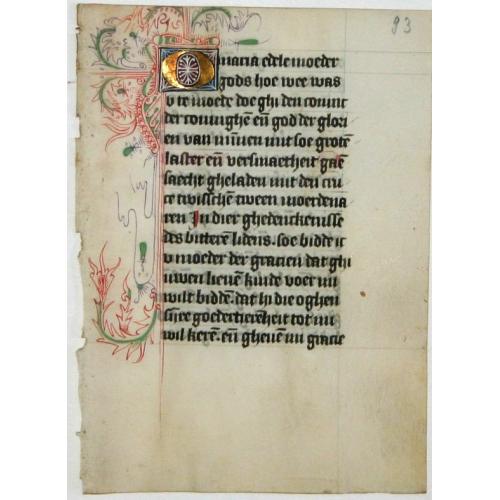 93
O maria edele moeder
gods hoe wee was
v te moede doe ghi den coninc
der coninghē eñ god der glori
en van minnen mit soe grotē
laster eñ versmaetheit gaē
saecht gheladen mit den cru
ce twisschē tween moerdena
ren In dier ghedenckenisse
des bitterē lidens. soe bidde ic
v moeder der gracien dat ghi
uwen lieuē kinde voer mi
wilt biddē. dat hi die oghen
sijnre goedertierēheit tot mi
wil kerē. eñ gheuen mi gracie